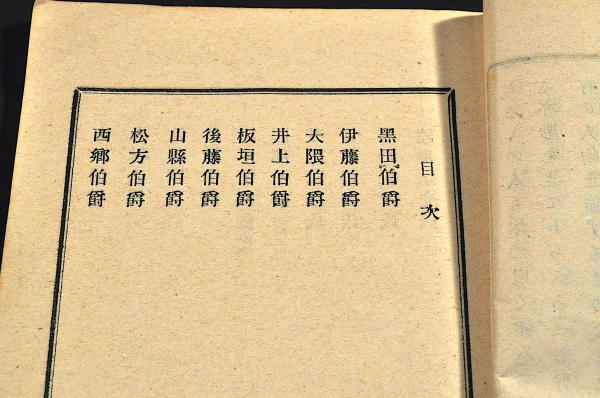 目次
黑田伯爵
伊藤伯爵
大隈伯爵
井上伯爵
板垣伯爵
後藤伯爵
山縣伯爵
松方伯爵
西鄕伯爵